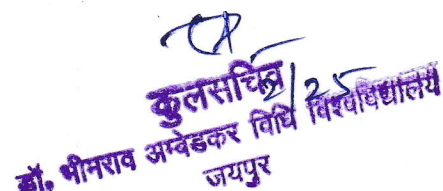 कुलसचिव
2/25
डॉ. भीमराव अम्बेडकर विधि विश्वविद्यालय
जयपुर